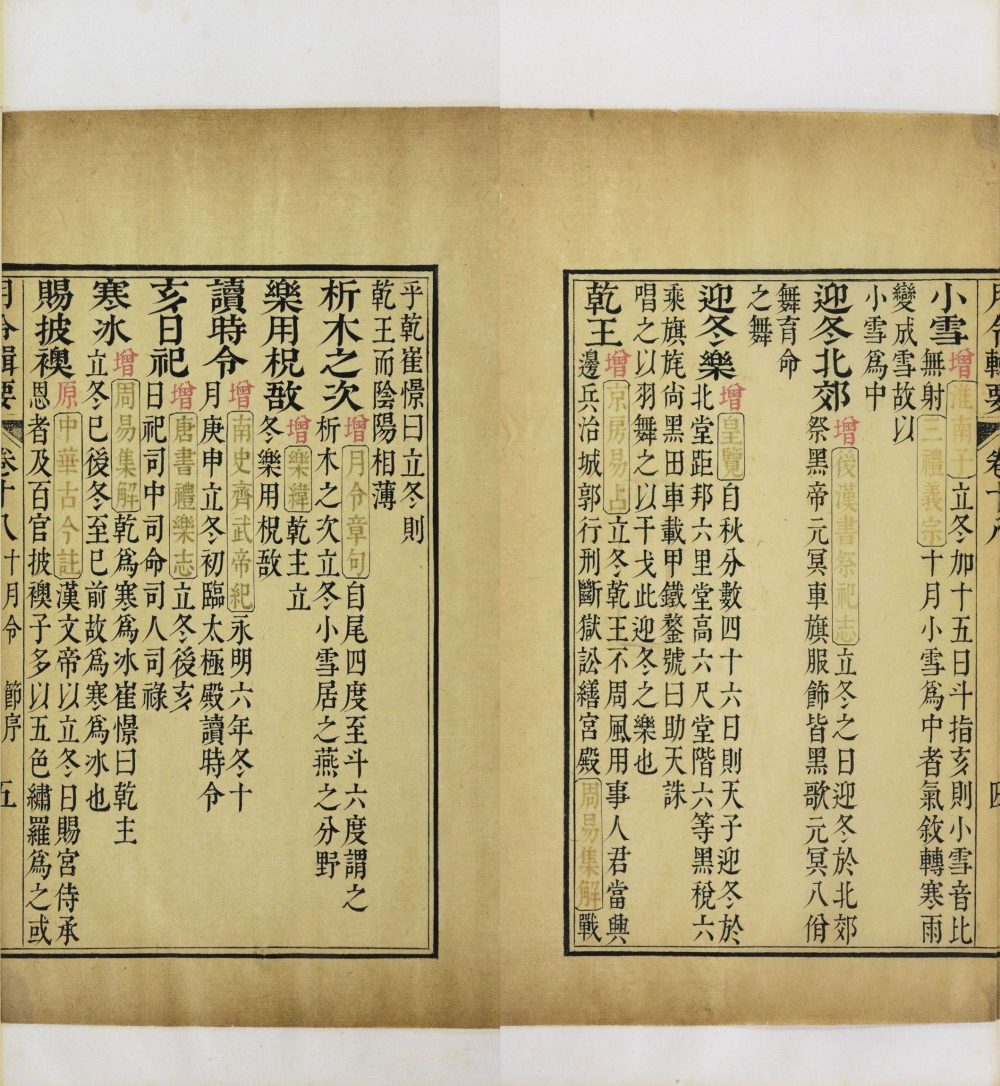 月令輯要 卷十八 四
小雪
增淮南子立冬加十五日斗指亥則小雪音比
無射三禮義宗十月小雪爲中者氣敘轉寒雨
變成雪故以
小雪爲中
迎冬北郊
增後漢書祭祀志立冬之日迎冬於北郊
祭黑帝元冥車旗服飾皆黑歌元冥八佾
舞育命
之舞
迎冬樂
增皇覽自秋分數四十六日則天子迎冬於
北堂距邦六里堂高六尺堂階六等黑稅六
乘旗旄尚黑田車載甲鐵鍪號曰助天誅
唱之以羽舞之以干戈此迎冬之樂也
乾王
增京房易占立冬乾王不周風用事人君當興
邊兵治城郭行刑斷獄訟繕宮殿周易集解戰
乎乾崔憬曰立冬則
乾王而陰陽相薄
析木之次
增月令章句自尾四度至斗六度謂之
析木之次立冬小雪居之燕之分野
樂用柷敔
增樂緯乾主立
冬樂用柷敔
讀時令
增南史齊武帝紀永明六年冬十
月庚申立冬初臨太極殿讀時令
亥日祀
增唐書禮樂志立冬後亥
日祀司中司命司人司祿
寒冰
增周易集解乾爲寒爲冰崔憬曰乾主
立冬巳後冬至巳前故爲寒爲冰也
賜披襖
原中華古今註漢文帝以立冬日賜宮侍承
恩者及百官披襖子多以五色繡羅爲之或
月令輯要 卷十八 十月令 節序 五